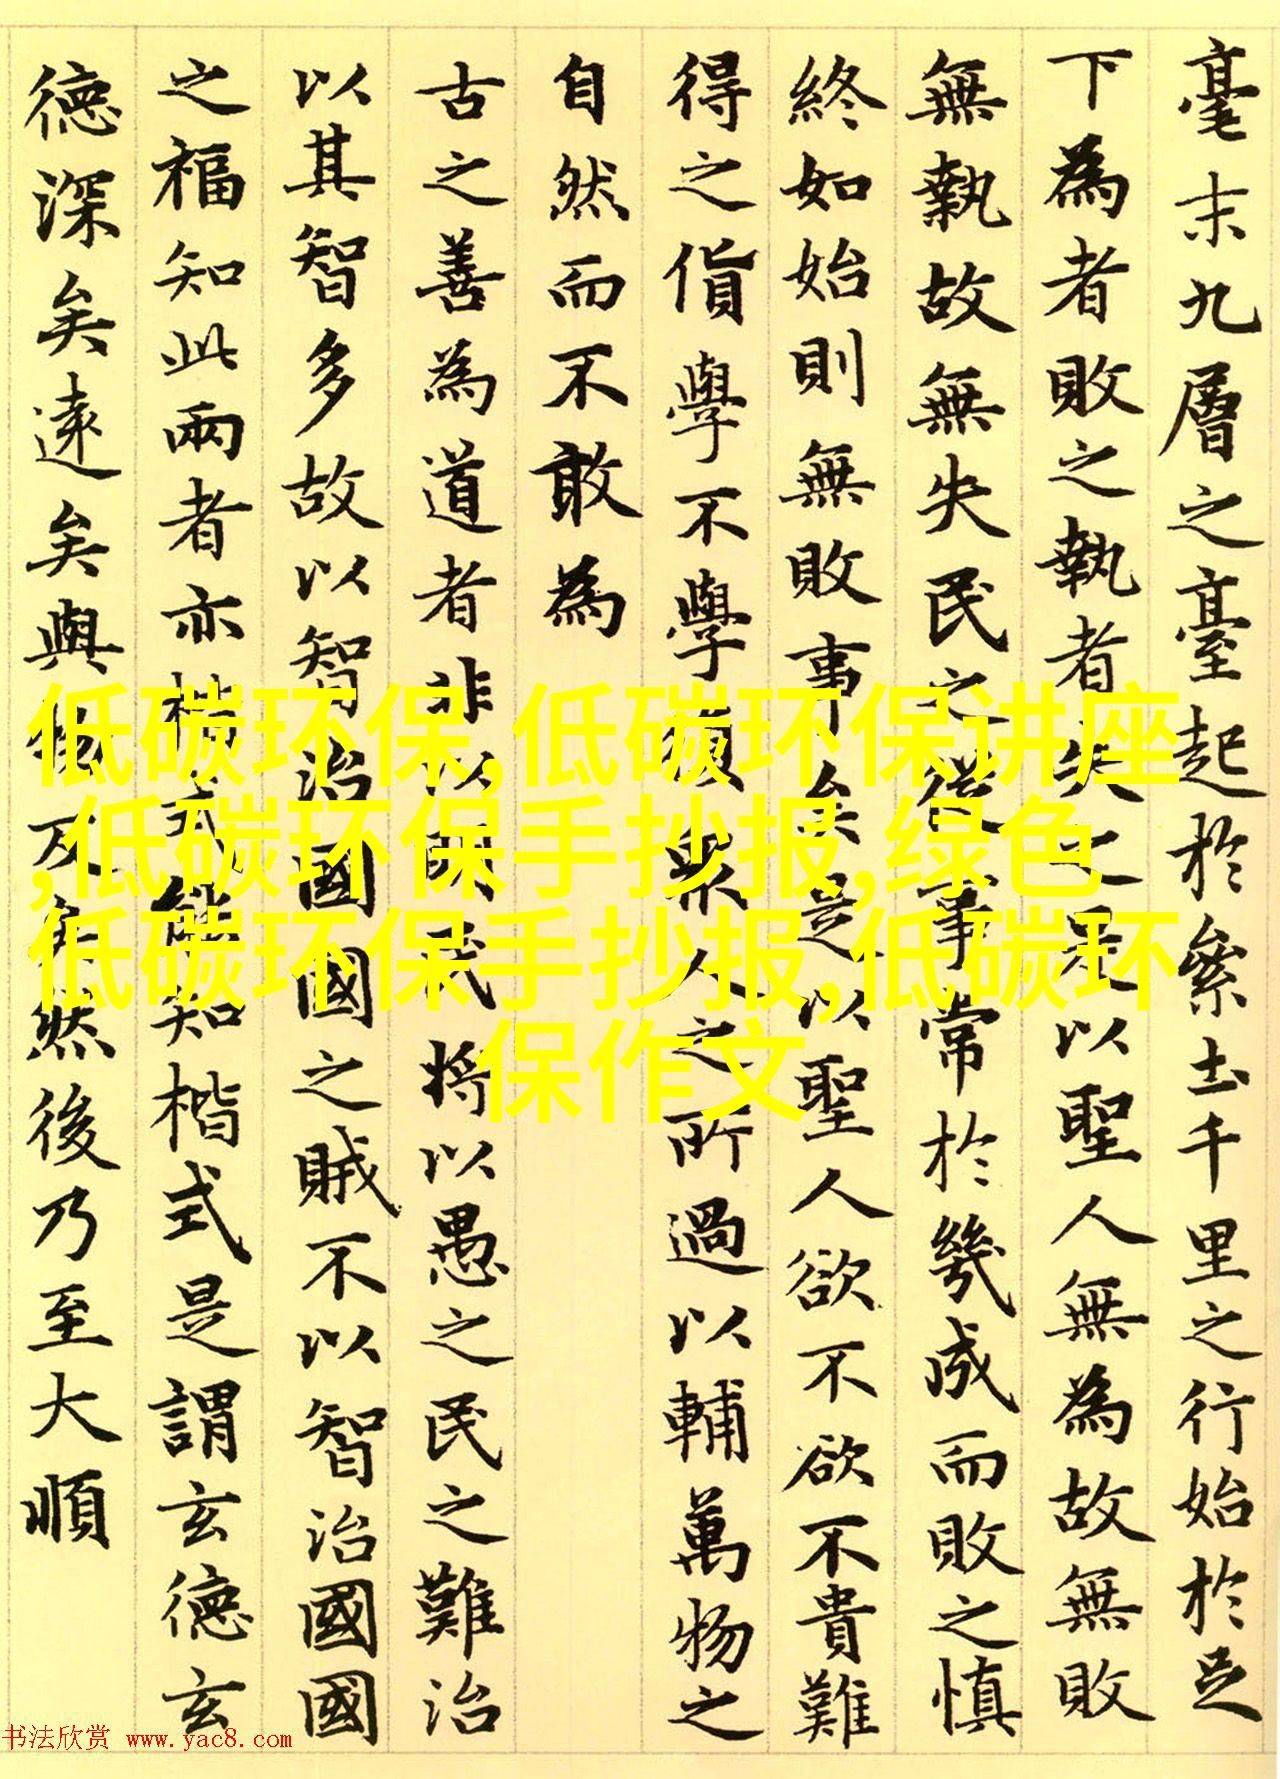 毫末九層之臺起於絫土千里之行始於足
下為者敗之執者失之是以聖人無為故無敗
無執故無失民之從事常於幾成而敗之慎
終如始則無敗事矣是以聖人欲不欲不貴難
得之貨學不學復眾人之所過以輔萬物之
自然而不敢為
古之善為道者非以明民將以愚之民之難治
以其智多故以智治國國之賊不以智治國國
之福知此兩者亦楷式能知楷式是謂玄德玄
德深矣遠矣與物反矣然後乃至大順
低碳环保,低碳环保讲座
,低碳环保手抄报,绿色
低碳环保手抄报,低碳环
保作文
书法欣赏 www.yac8.com